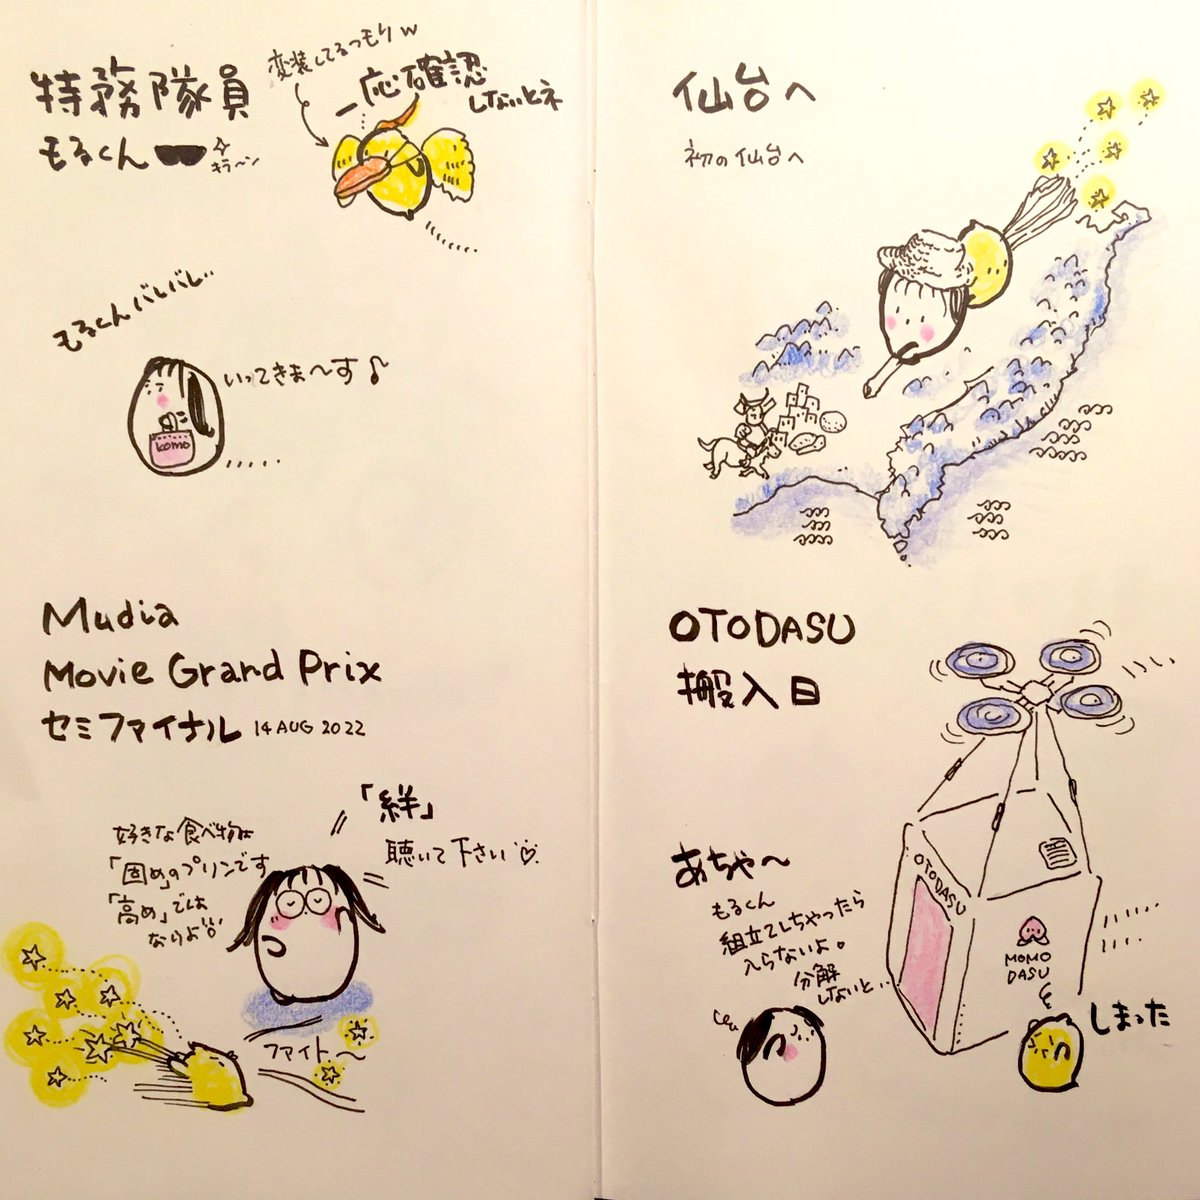 特務隊員
もるくん
キラ〜ン
変装してるつもりw
一応確認
しないとネ
もるくんバレバレ…
いってきま〜す♪
komo
Mudia
Movie Grand Prix
セミファイナル 14 AUG 2022
「絆」
聴いて下さい♡
好きな食べ物は
「固め」のプリンです
「高め」では
ないよ!!
ファイト〜
仙台へ
初の仙台へ
OTODASU
搬入日
OTODASU
MOMO
DASU
あちゃ〜
もるくん
組立てしちゃったら
入らないよ。
分解
しないと..
しまった